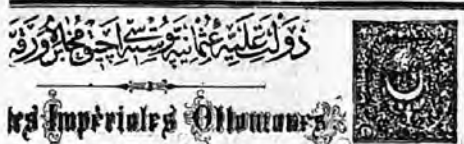 دولت علیه عثمانیه پوسته سی اچق مخابره ورقه
tes Impériales Ottomanes